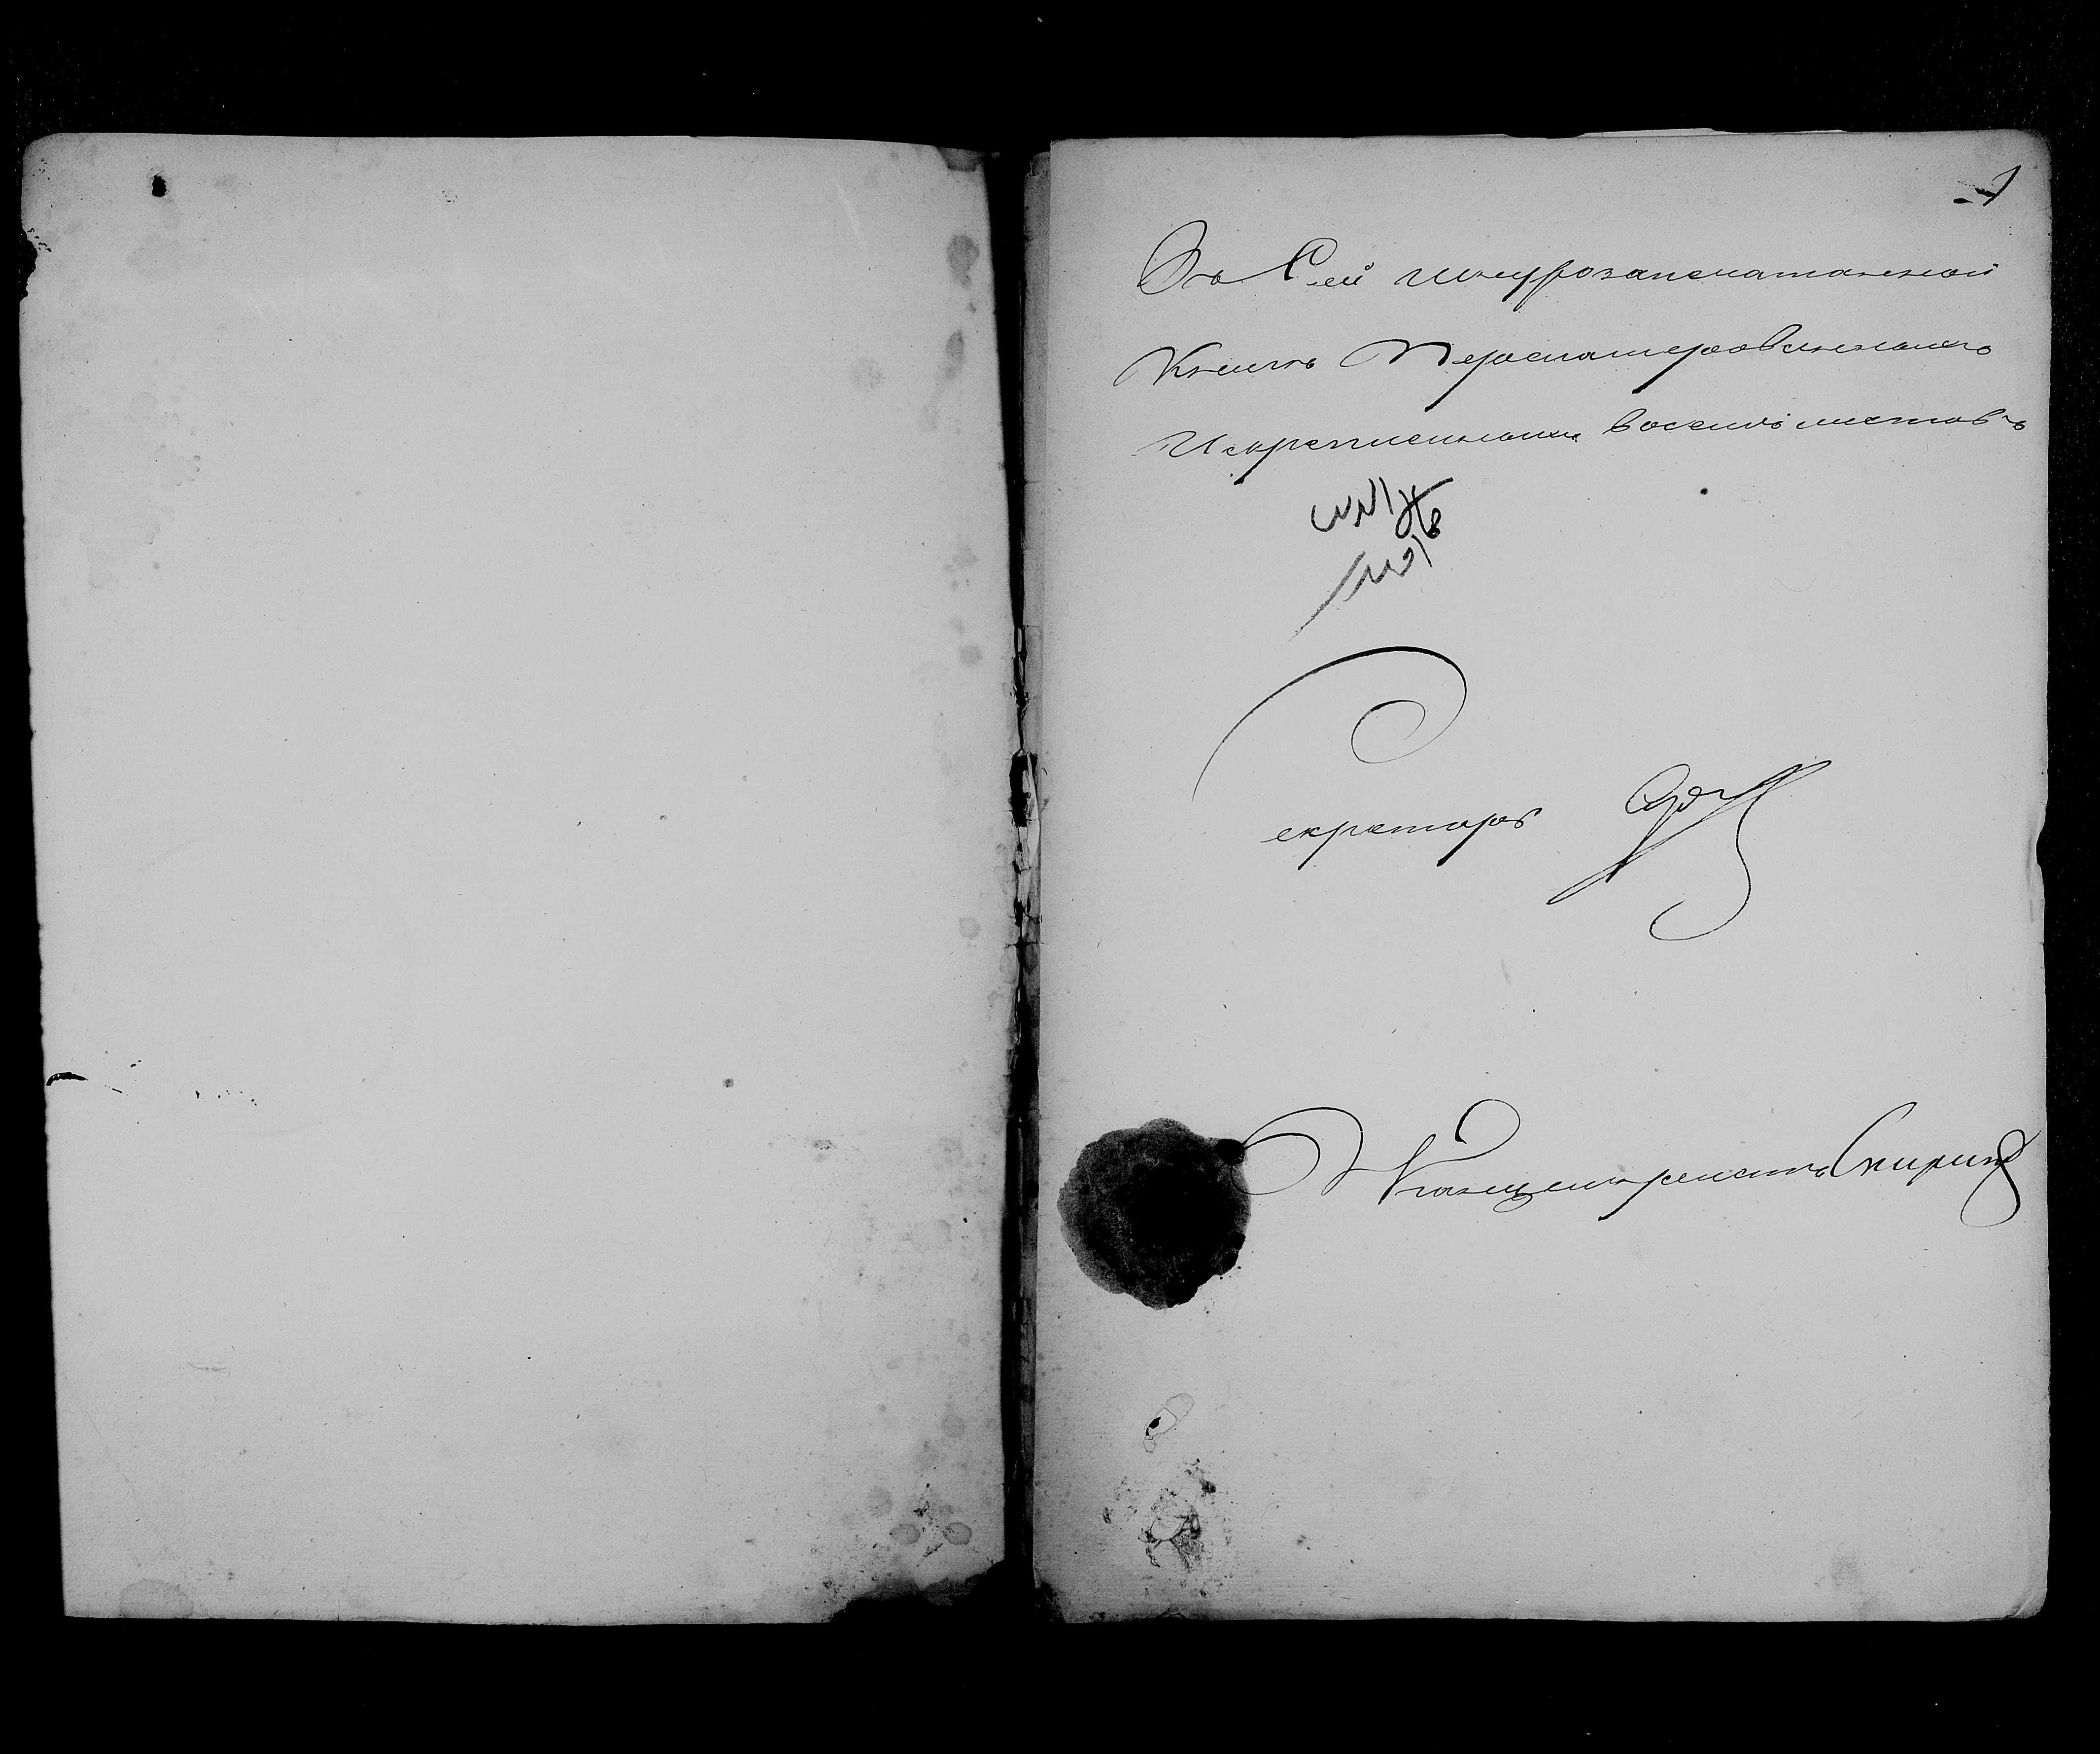 1
Въ Сей шнурозапечатанной
Книгѣ Перенумерованныхъ
И скрепленныхъ восемь листовъ
Секретарь
Канцеляристъ